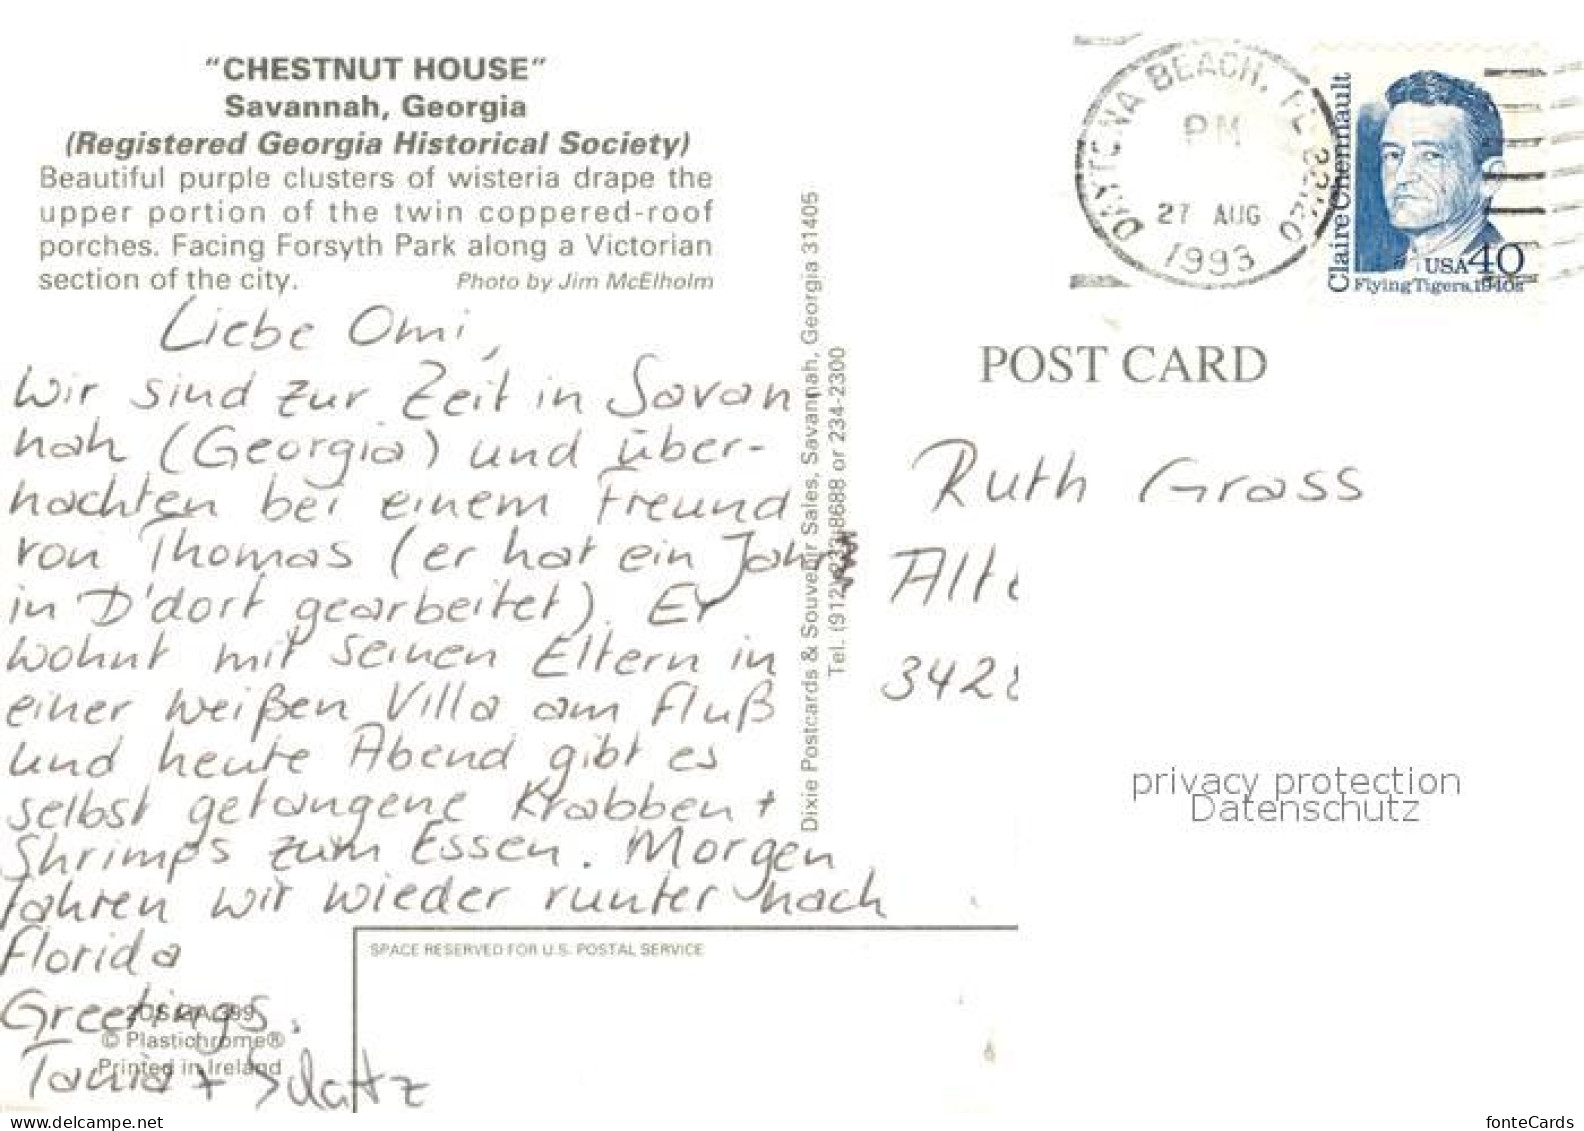 "CHESTNUT HOUSE"
Savannah, Georgia
(Registered Georgia Historical Society)
Beautiful purple clusters of wisteria drape the
upper portion of the twin coppered-roof
porches. Facing Forsyth Park along a Victorian
section of the city. Photo by Jim McElholm
Liebe Omi,
Wir sind zur Zeit in Savan
nah (Georgia) und über-
nachten bei einem Freund
von Thomas (er hat ein Jahr
in D'dorf gearbeitet). Er
wohnt mit seinen Eltern in
einer weißen Villa am Fluß
und heute Abend gibt es
selbst gefangene Krabben +
Shrimps zum Essen. Morgen
fahren wir wieder runter nach
Florida
Greetings.
Tania +
Dixie Postcards & Souvenir Sales, Savannah, Georgia 31405
Tel. (912) 233-8688 or 234-2300
DAYTONA BEACH, FL
PM
27 AUG
1993
Claire Chennault
USA 40
Flying Tigers, 1940s
POST CARD
Ruth Grass
Alte
342
privacy protection
Datenschutz
SPACE RESERVED FOR U.S. POSTAL SERVICE
© Plastichrome®
Printed in Ireland
www.delcampe.net
fonteCards